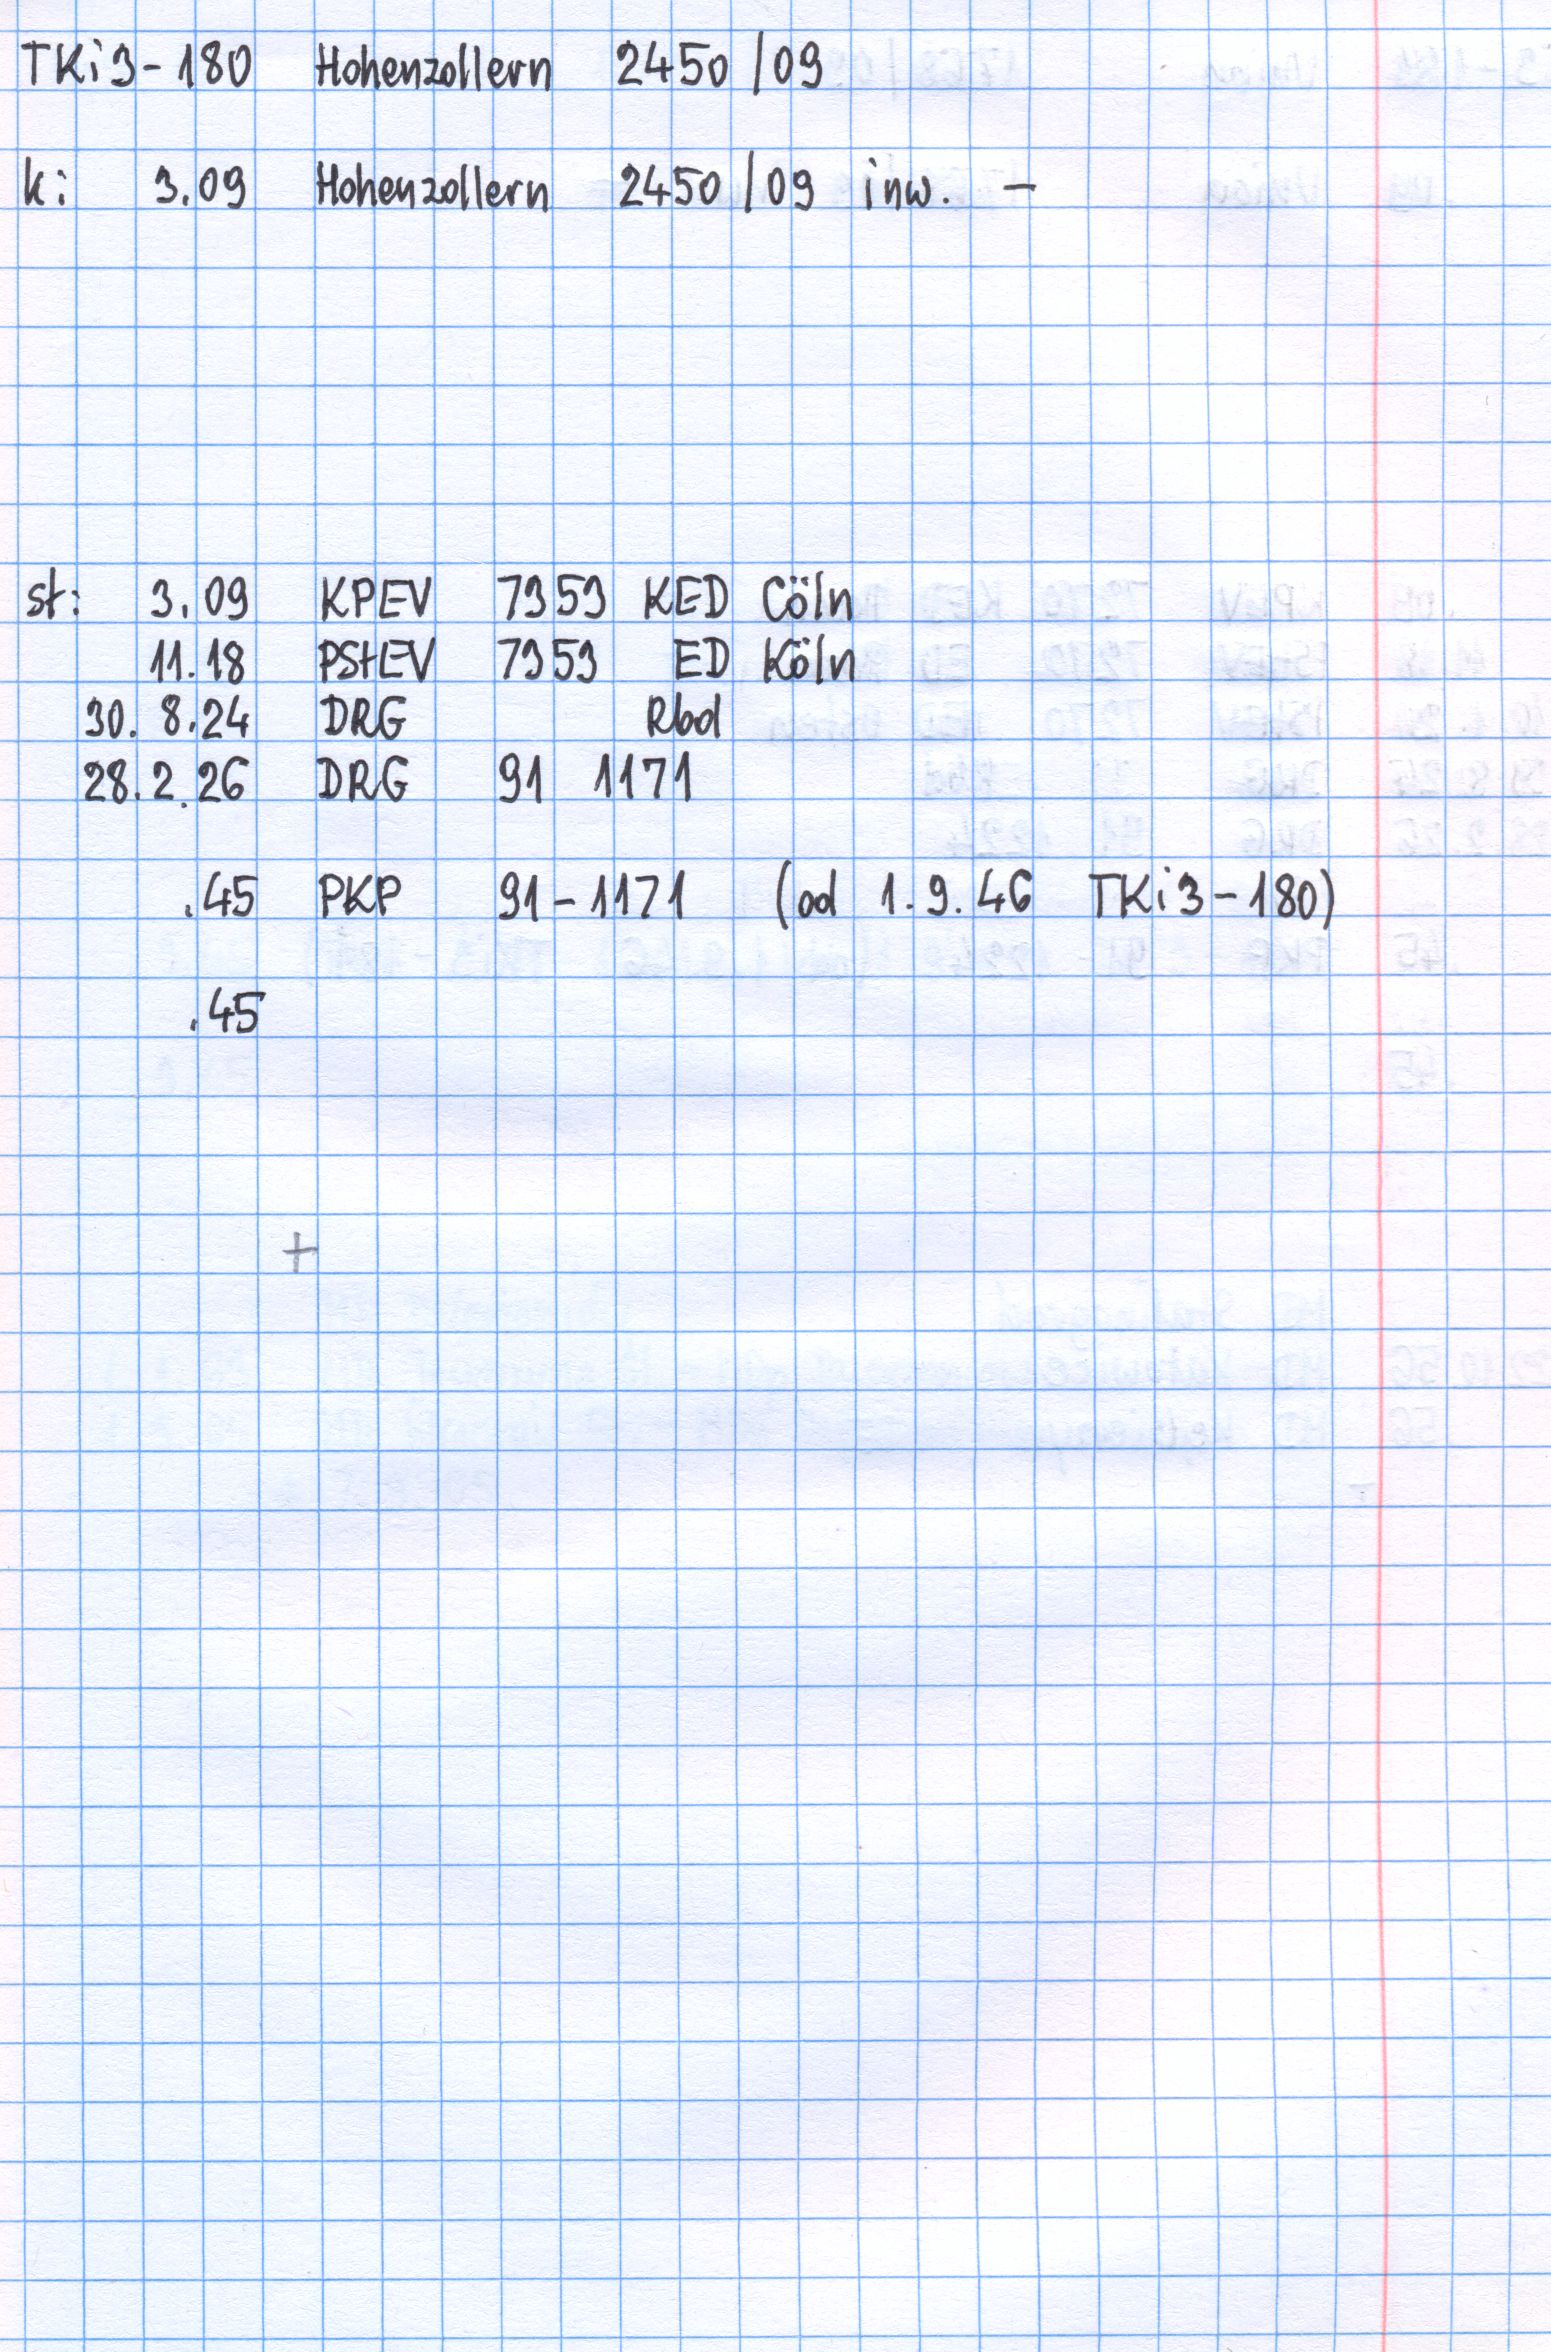 TKi3-180 Hohenzollern 2450/09
k: 3.09 Hohenzollern 2450/09 inw. -
st: 3.09 KPEV 7353 KED Cöln
11.18 PStEV 7353 ED Köln
30. 8.24 DRG Rbd
28.2.26 DRG 91 1171
.45 PKP 91-1171 (od 1.9.46 TKi3-180)
.45
+